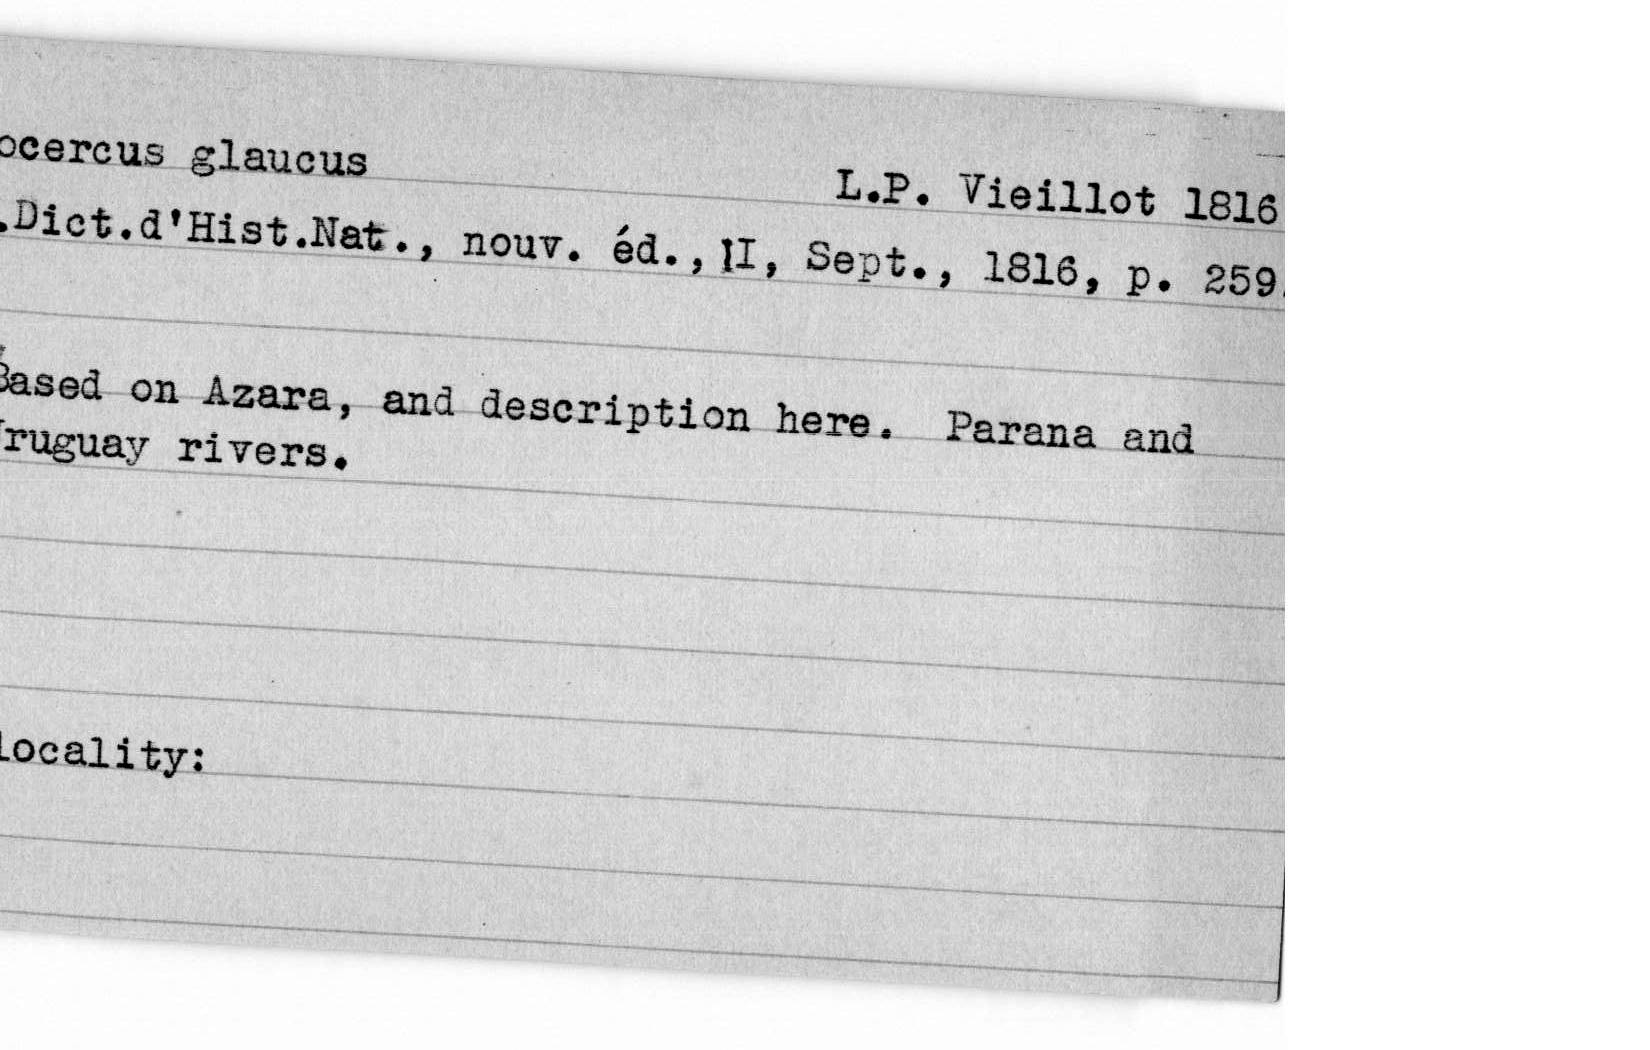 ocercus glaucus
L.P. Vieillot 1816
.Dict.d'Hist.Nat., nouv. éd., II, Sept., 1816, p. 259.
Based on Azara, and description here. Parana and
Uruguay rivers.
locality: